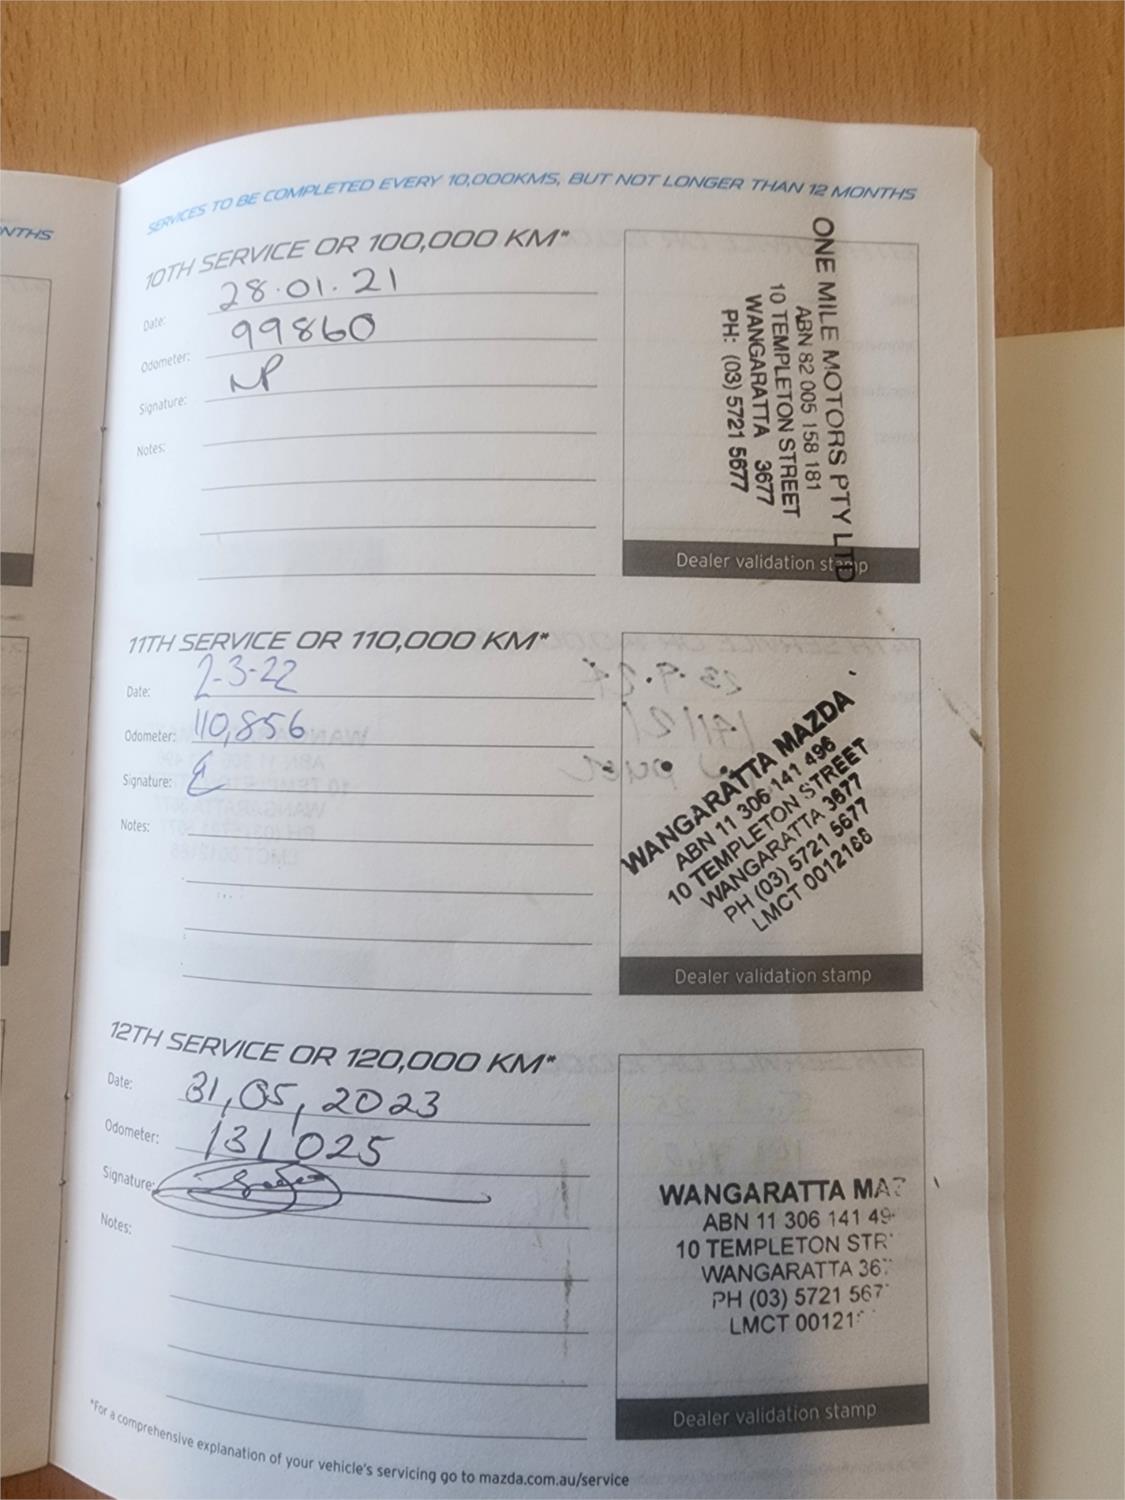 NTHS
SERVICES TO BE COMPLETED EVERY 10,000KMS, BUT NOT LONGER THAN 12 MONTHS
10TH SERVICE OR 100,000 KM*
Date: 28.01.21
Odometer: 99860
Signature: NP
Notes:
ONE MILE MOTORS PTY LTD
ABN 82 005 158 181
10 TEMPLETON STREET
WANGARATTA 3677
PH: (03) 5721 5677
Dealer validation stamp
11TH SERVICE OR 110,000 KM*
Date: 2-3-22
Odometer: 110,856
Signature:
Notes:
WANGARATTA MAZDA
ABN 11 306 141 496
10 TEMPLETON STREET
WANGARATTA 3677
PH (03) 5721 5677
LMCT 0012168
Dealer validation stamp
12TH SERVICE OR 120,000 KM*
Date: 31,05,2023
Odometer: 131025
Signature:
Notes:
WANGARATTA MAZ
ABN 11 306 141 49
10 TEMPLETON STR
WANGARATTA 367
PH (03) 5721 567
LMCT 00121
Dealer validation stamp
*For a comprehensive explanation of your vehicle's servicing go to mazda.com.au/service